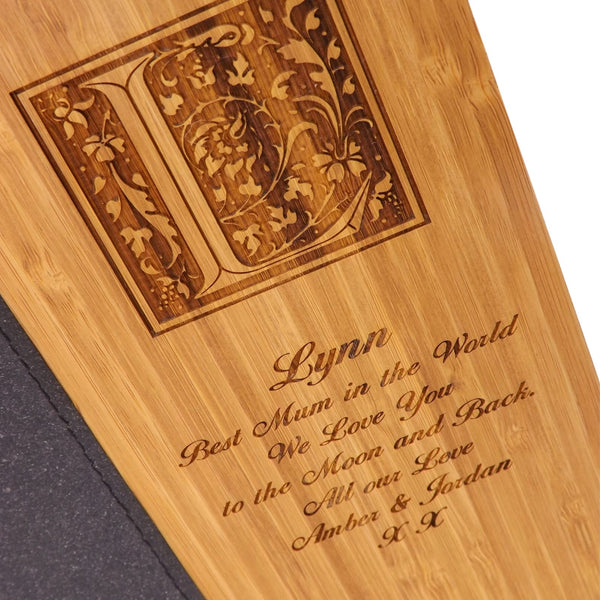 L
Lynn
Best Mum in the World
We Love You
to the Moon and Back.
All our Love
Amber & Jordan
X X